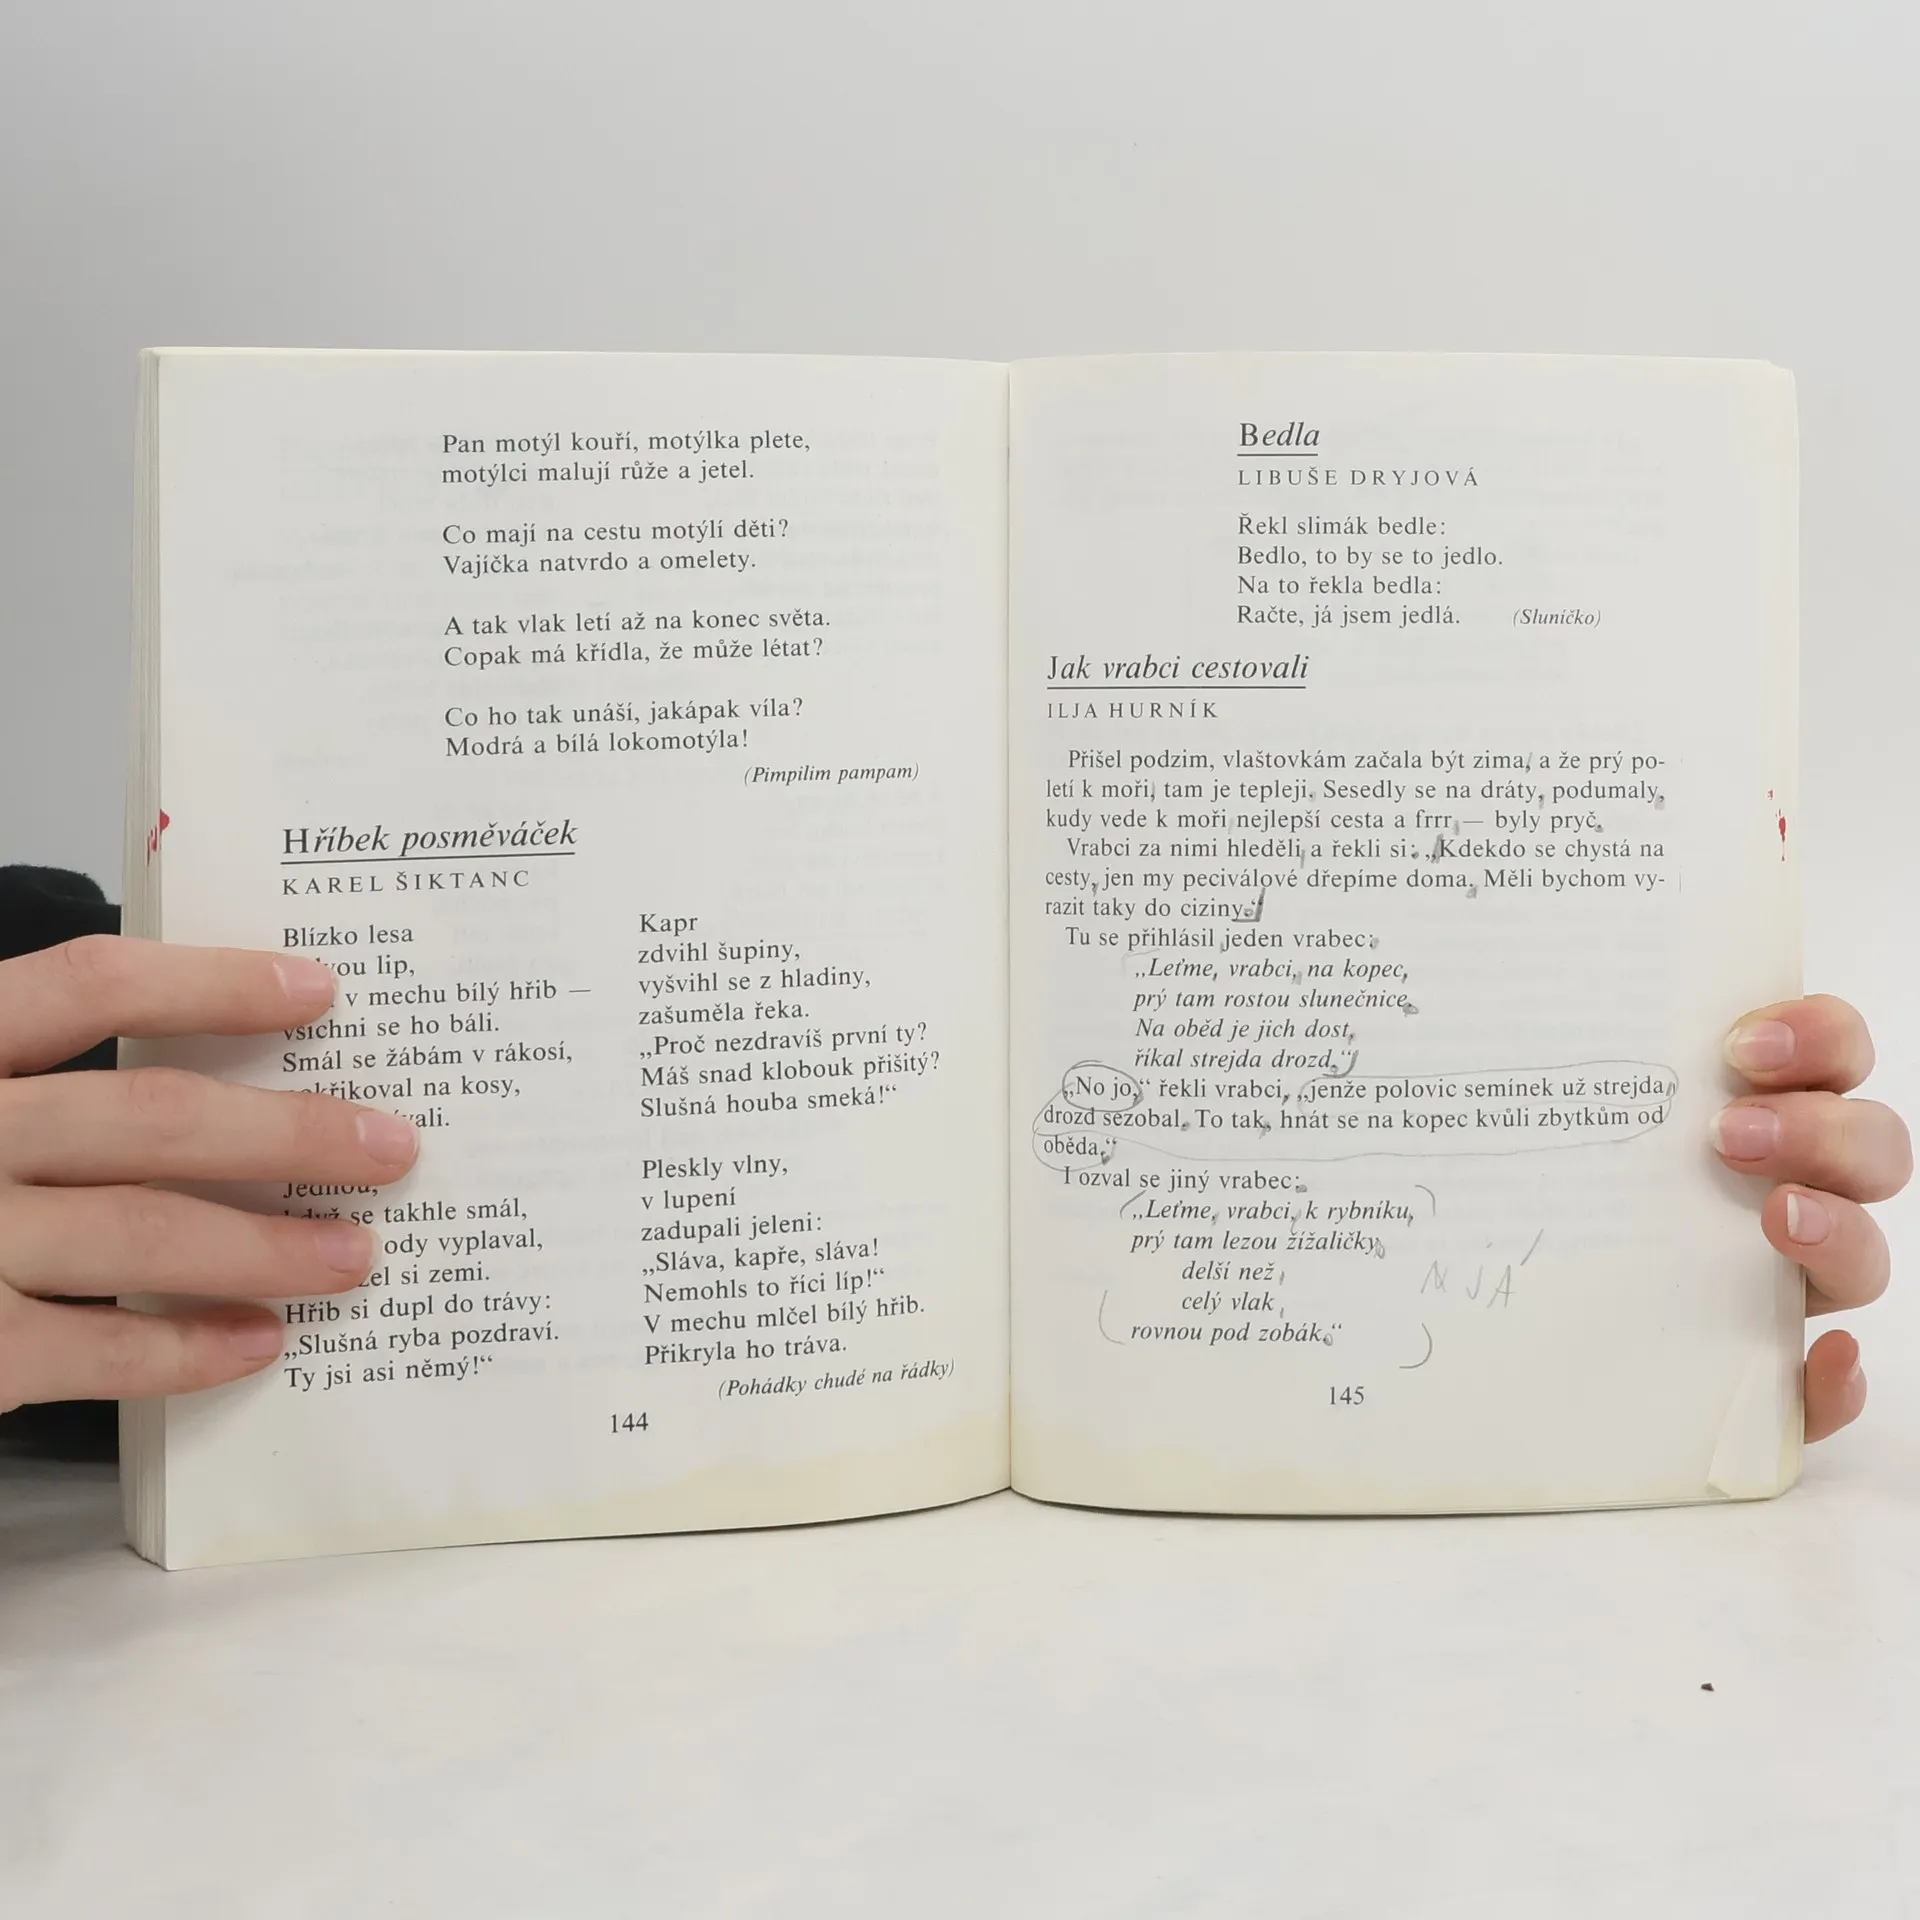 Pan motýl kouří, motýlka plete,
motýlci malují růže a jetel.
Co mají na cestu motýlí děti?
Vajíčka natvrdo a omelety.
A tak vlak letí až na konec světa.
Copak má křídla, že může létat?
Co ho tak unáší, jakápak víla?
Modrá a bílá lokomotýla!
(Pimpilim pampam)
Hříbek posměváček
KAREL ŠIKTANC
Blízko lesa
lip,
v mechu bílý hřib —
všichni se ho báli.
Smál se žábám v rákosí,
na kosy,
Jednou,
když se takhle smál,
vyplaval,
si zemi.
Hřib si dupl do trávy:
„Slušná ryba pozdraví.
Ty jsi asi němý!“
Kapr
zdvihl šupiny,
vyšvihl se z hladiny,
zašuměla řeka.
„Proč nezdravíš první ty?
Máš snad klobouk přišitý?
Slušná houba smeká!“
Pleskly vlny,
v lupení
zadupali jeleni:
„Sláva, kapře, sláva!
Nemohls to říci líp!“
V mechu mlčel bílý hřib.
Přikryla ho tráva.
(Pohádky chudé na řádky)
144
Bedla
LIBUŠE DRYJOVÁ
Řekl slimák bedle:
Bedlo, to by se to jedlo.
Na to řekla bedla:
Račte, já jsem jedlá. (Sluníčko)
Jak vrabci cestovali
ILJA HURNÍK
Přišel podzim, vlaštovkám začala být zima, a že prý po-
letí k moři, tam je tepleji. Sesedly se na dráty, podumaly,
kudy vede k moři nejlepší cesta a frrr — byly pryč.
Vrabci za nimi hleděli a řekli si: „Kdekdo se chystá na
cesty, jen my peciválové dřepíme doma. Měli bychom vy-
razit taky do ciziny.“
Tu se přihlásil jeden vrabec:
„Leťme, vrabci, na kopec,
prý tam rostou slunečnice.
Na oběd je jich dost,
říkal strejda drozd.“
„No jo,“ řekli vrabci, „jenže polovic semínek už strejda
drozd sezobal. To tak, hnát se na kopec kvůli zbytkům od
oběda.“
I ozval se jiný vrabec:
„Leťme, vrabci, k rybníku,
prý tam lezou žížaličky
delší než
celý vlak
rovnou pod zobák.“
JÁ
145